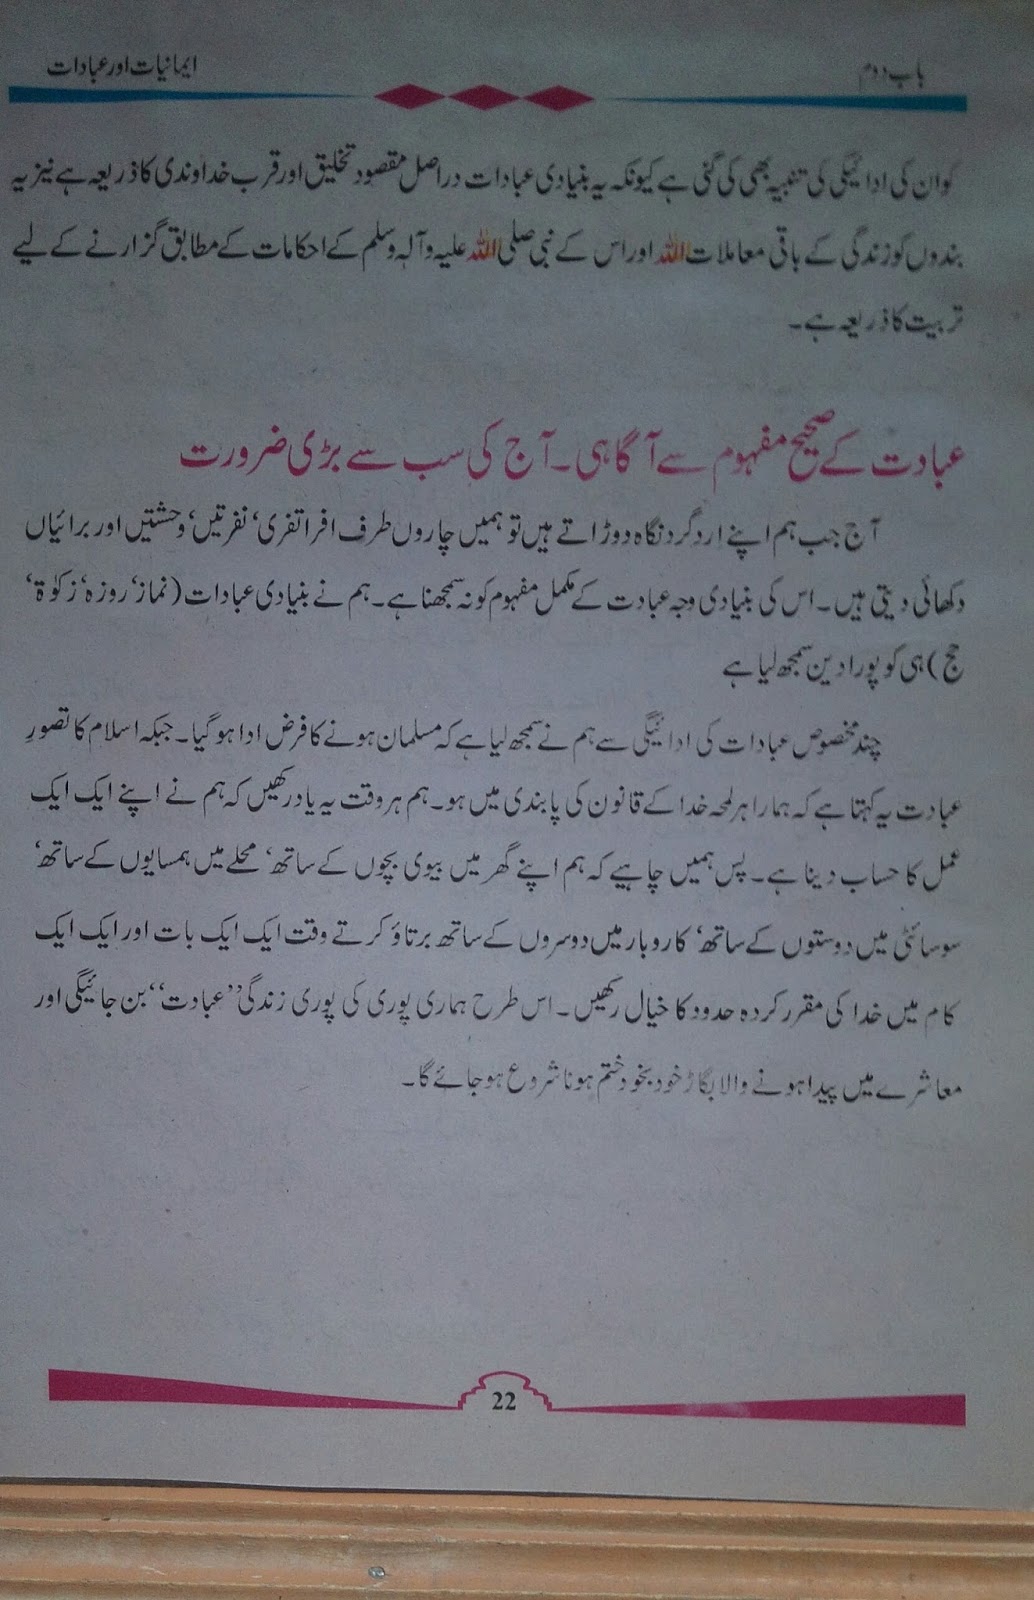 باب دوم
ایمانیات اور عبادات
کو ان کی ادائیگی کی تنبیہ بھی کی گئی ہے کیونکہ یہ بنیادی عبادات دراصل مقصود تخلیق اور قرب خداوندی کا ذریعہ ہے نیز یہ
بندوں کو زندگی کے باقی معاملات اللہ اور اس کے نبی صلی اللہ علیہ وآلہ وسلم کے احکامات کے مطابق گزارنے کے لیے
تربیت کا ذریعہ ہے۔
عبادت کے صحیح مفہوم سے آگاہی۔ آج کی سب سے بڑی ضرورت
آج جب ہم اپنے ارد گرد نگاہ دوڑاتے ہیں تو ہمیں چاروں طرف افراتفری‘ نفرتیں‘ وحشتیں اور برائیاں
دکھائی دیتی ہیں۔ اس کی بنیادی وجہ عبادت کے مکمل مفہوم کو نہ سمجھنا ہے۔ ہم نے بنیادی عبادات (نماز‘ روزہ‘ زکوٰۃ‘
حج) ہی کو پورا دین سمجھ لیا ہے
چند مخصوص عبادات کی ادائیگی سے ہم نے سمجھ لیا ہے کہ مسلمان ہونے کا فرض ادا ہو گیا۔ جبکہ اسلام کا تصورِ
عبادت یہ کہتا ہے کہ ہمارا ہر لمحہ خدا کے قانون کی پابندی میں ہو۔ ہم ہر وقت یہ یاد رکھیں کہ ہم نے اپنے ایک ایک
عمل کا حساب دینا ہے۔ پس ہمیں چاہیے کہ ہم اپنے گھر میں بیوی بچوں کے ساتھ‘ محلے میں ہمسایوں کے ساتھ‘
سوسائٹی میں دوستوں کے ساتھ‘ کاروبار میں دوسروں کے ساتھ برتاؤ کرتے وقت ایک ایک بات اور ایک ایک
کام میں خدا کی مقرر کردہ حدود کا خیال رکھیں۔ اس طرح ہماری پوری کی پوری زندگی ’’عبادت‘‘ بن جائیگی اور
معاشرے میں پیدا ہونے والا بگاڑ خود بخود ختم ہونا شروع ہو جائے گا۔
22